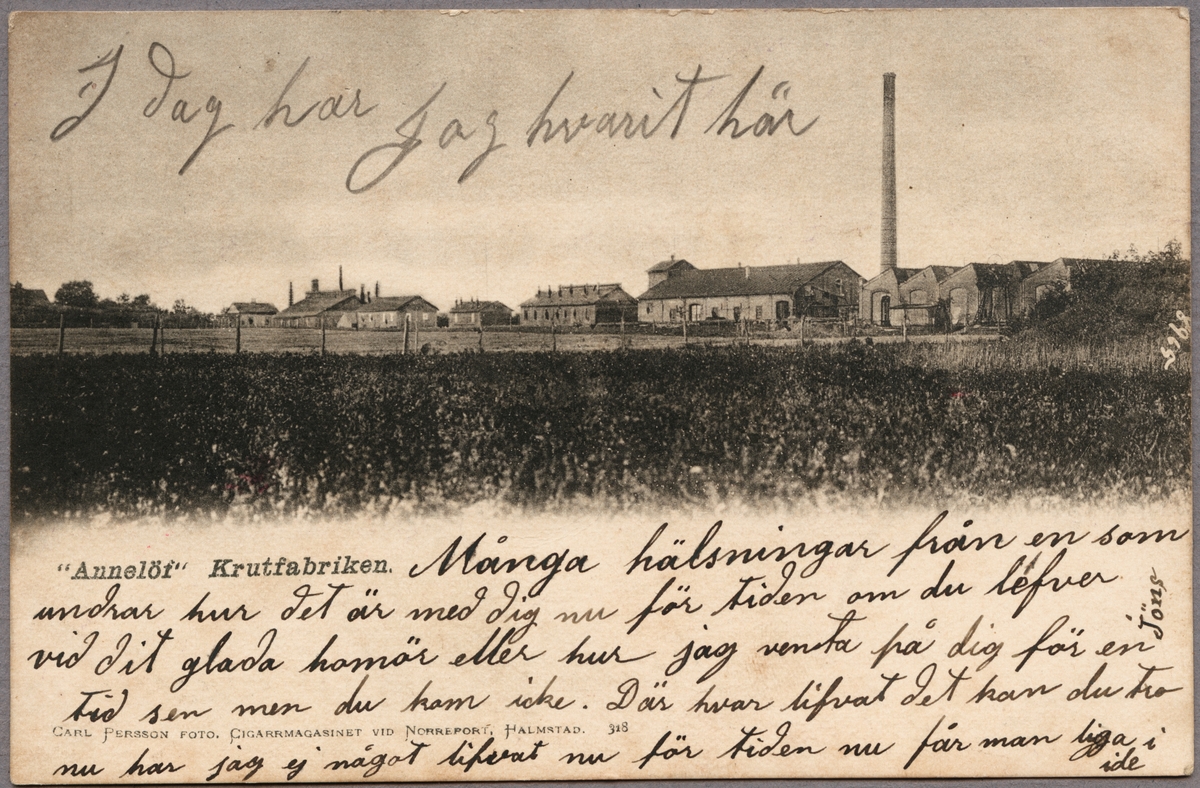 I dag har jag hvarit här
"Annelöf" Krutfabriken. Många hälsningar från en som
undrar hur det är med dig nu för tiden om du lefver
vid dit glada homör eller hur jag venta på dig för en
tid sen men du kom icke. Där hvar lifvat det kan du tro
CARL PERSSON FOTO. CIGARRMAGASINET VID NORREPORT, HALMSTAD. 318
nu har jag ej något lifvat nu för tiden nu får man liga i
ide
Jöns